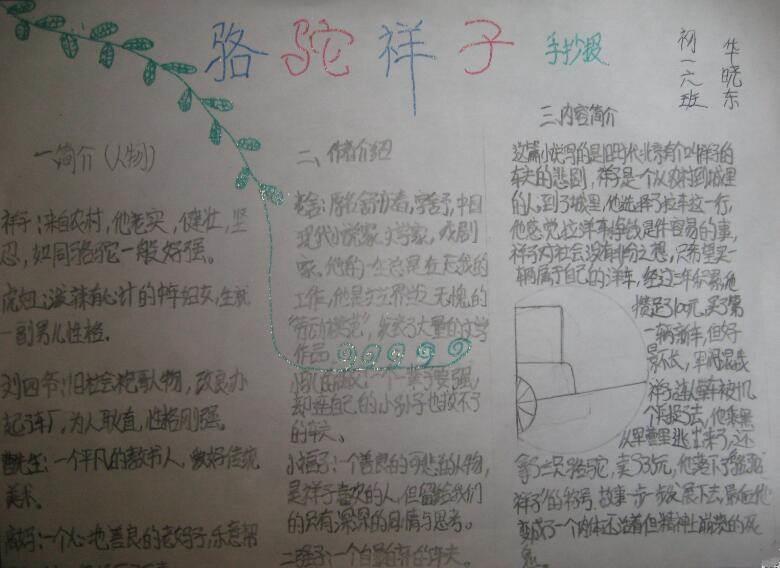 骆驼祥子 手抄报
初一六班
华晓东
一、简介（人物）
祥子：来自农村，他老实，健壮，坚
忍，如同骆驼一般好强。
虎妞：泼辣有心计的中年妇女，生就
一副男儿性格。
刘四爷：旧社会袍哥人物，改良办
起了车厂，为人耿直，性格刚强。
曹先生：一个平凡的教书人，爱好传统
美术。
高妈：一个心地善良的老妈子，乐意帮
二、作者介绍
老舍：原名舒庆春，字舍予，中国
现代小说家、文学家，戏剧
家。他的一生总是在忘我的
工作，他是文艺界当之无愧的
“劳动模范”，发表了大量的文学
作品。
一辈子要强，
却连自己的小孙子也救不了
的车夫。
小福子：一个善良的可悲的人物，
是祥子喜欢的人，但留给我们
的只有深深的同情与思考。
二强子：一个自暴自弃的车夫。
三、内容简介
这篇小说写的是旧时代北京有个叫祥子的
车夫的悲剧，祥子是个从农村到城里
的人，到了城里，他选择了拉车这一行，
他感觉拉洋车挣钱是件容易的事，
祥子对社会没有非份之想，只希望买一
辆属于自己的洋车，经过三年积累，他
攒足了100元，买了第
一辆新车，但好
景不长，
祥子连人带车被抓，
他乘黑
从军营里逃出来了，还
拿了三只骆驼，卖了35元，他落下了“骆驼
祥子”的称号，故事一步一步发展下去，最后他
变成了一个肉体还活着但精神上崩溃的死
鬼。